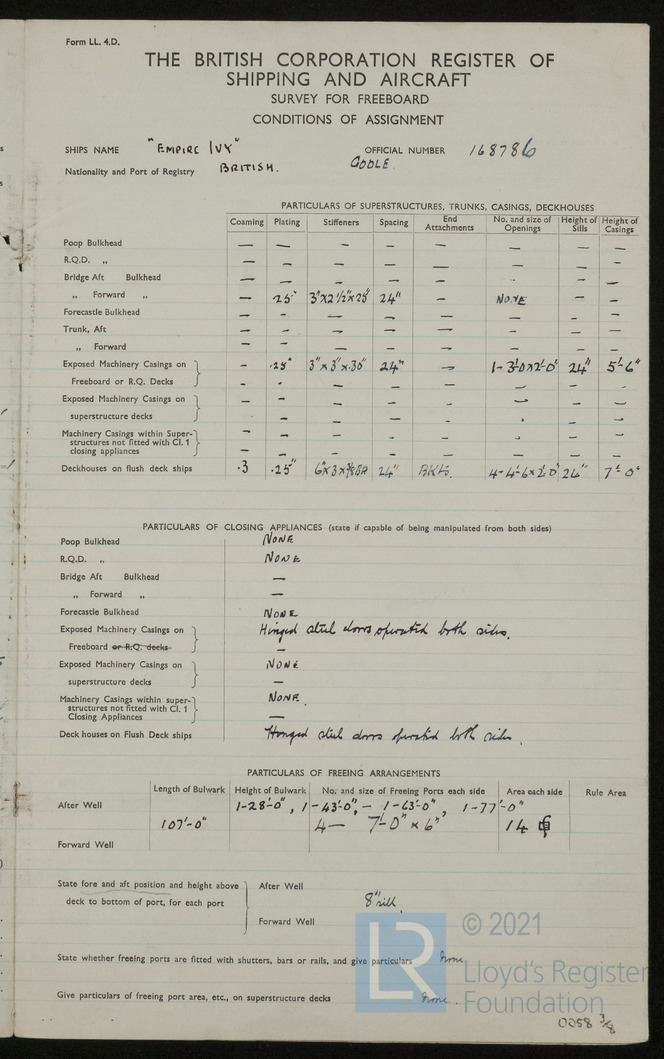 Form LL. 4.D.
THE BRITISH CORPORATION REGISTER OF
SHIPPING AND AIRCRAFT
SURVEY FOR FREEBOARD
CONDITIONS OF ASSIGNMENT
SHIPS NAME "EMPIRE IVY" OFFICIAL NUMBER 168786
Nationality and Port of Registry BRITISH. GOOLE.
PARTICULARS OF SUPERSTRUCTURES, TRUNKS, CASINGS, DECKHOUSES
Coaming Plating Stiffeners Spacing End Attachments No. and size of Openings Height of Sills Height of Casings
Poop Bulkhead — — — — — — — —
R.Q.D. „ — — — — — — — —
Bridge Aft Bulkhead — — — — — — —
„ Forward „ — .25" 3"x2½"x25" 24" — NONE — —
Forecastle Bulkhead — - — — - — — —
Trunk, Aft — - — — — — — —
„ Forward — — — — — — — —
Exposed Machinery Casings on - .25" 3"x3"x.30" 24" — 1-3'-0"x2'-0" 24" 5'-6"
Freeboard or R.Q. Decks - - — — - — — —
Exposed Machinery Casings on — - — — - — — —
superstructure decks - — — - - — —
Machinery Casings within Super-
structures not fitted with Cl. 1
closing appliances
Deckhouses on flush deck ships .3 .25" 24" BKts. 4-4'-6"x2'-0" 24" 7'-0"
PARTICULARS OF CLOSING APPLIANCES (state if capable of being manipulated from both sides)
Poop Bulkhead NONE
R.Q.D. „ NONE
Bridge Aft Bulkhead —
„ Forward „ —
Forecastle Bulkhead NONE
Exposed Machinery Casings on Hinged steel doors operated both sides.
Freeboard or R.Q. decks —
Exposed Machinery Casings on NONE
superstructure decks —
Machinery Casings within super- NONE.
structures not fitted with Cl. 1
Closing Appliances —
Deck houses on Flush Deck ships Hinged steel doors operated both sides.
PARTICULARS OF FREEING ARRANGEMENTS
Length of Bulwark Height of Bulwark No. and size of Freeing Ports each side Area each side Rule Area
After Well 1-28'-0", 1-43'-0", — 1-63'-0", 1-77'-0"
107'-0" 4— 7'-0" x 6" 14
Forward Well
State fore and aft position and height above After Well
deck to bottom of port, for each port 8" sill.
Forward Well
State whether freeing ports are fitted with shutters, bars or rails, and give particulars None
Give particulars of freeing port area, etc., on superstructure decks None.
LR
© 2021
Lloyd's Register
Foundation
0058 3/8